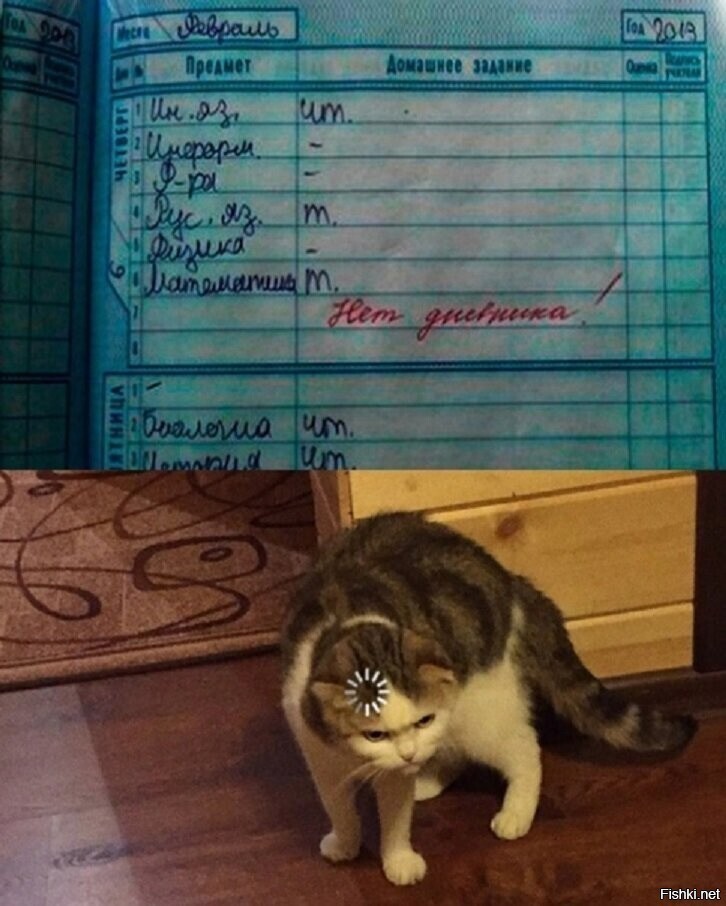 Год 2013 Месяц Февраль Год 2013
Оценка Подпись учителя Дни № Предмет Домашнее задание Оценка Подпись учителя
ЧЕТВЕРГ
6
1 Ин. яз. чт.
2 Информ. -
3 Ф-ра -
4 Рус. яз. т.
5 Физика -
6 Математика т.
7 Нет дневника!
8
ПЯТНИЦА
1 -
2 Биология чт.
3 История чт.
Fishki.net